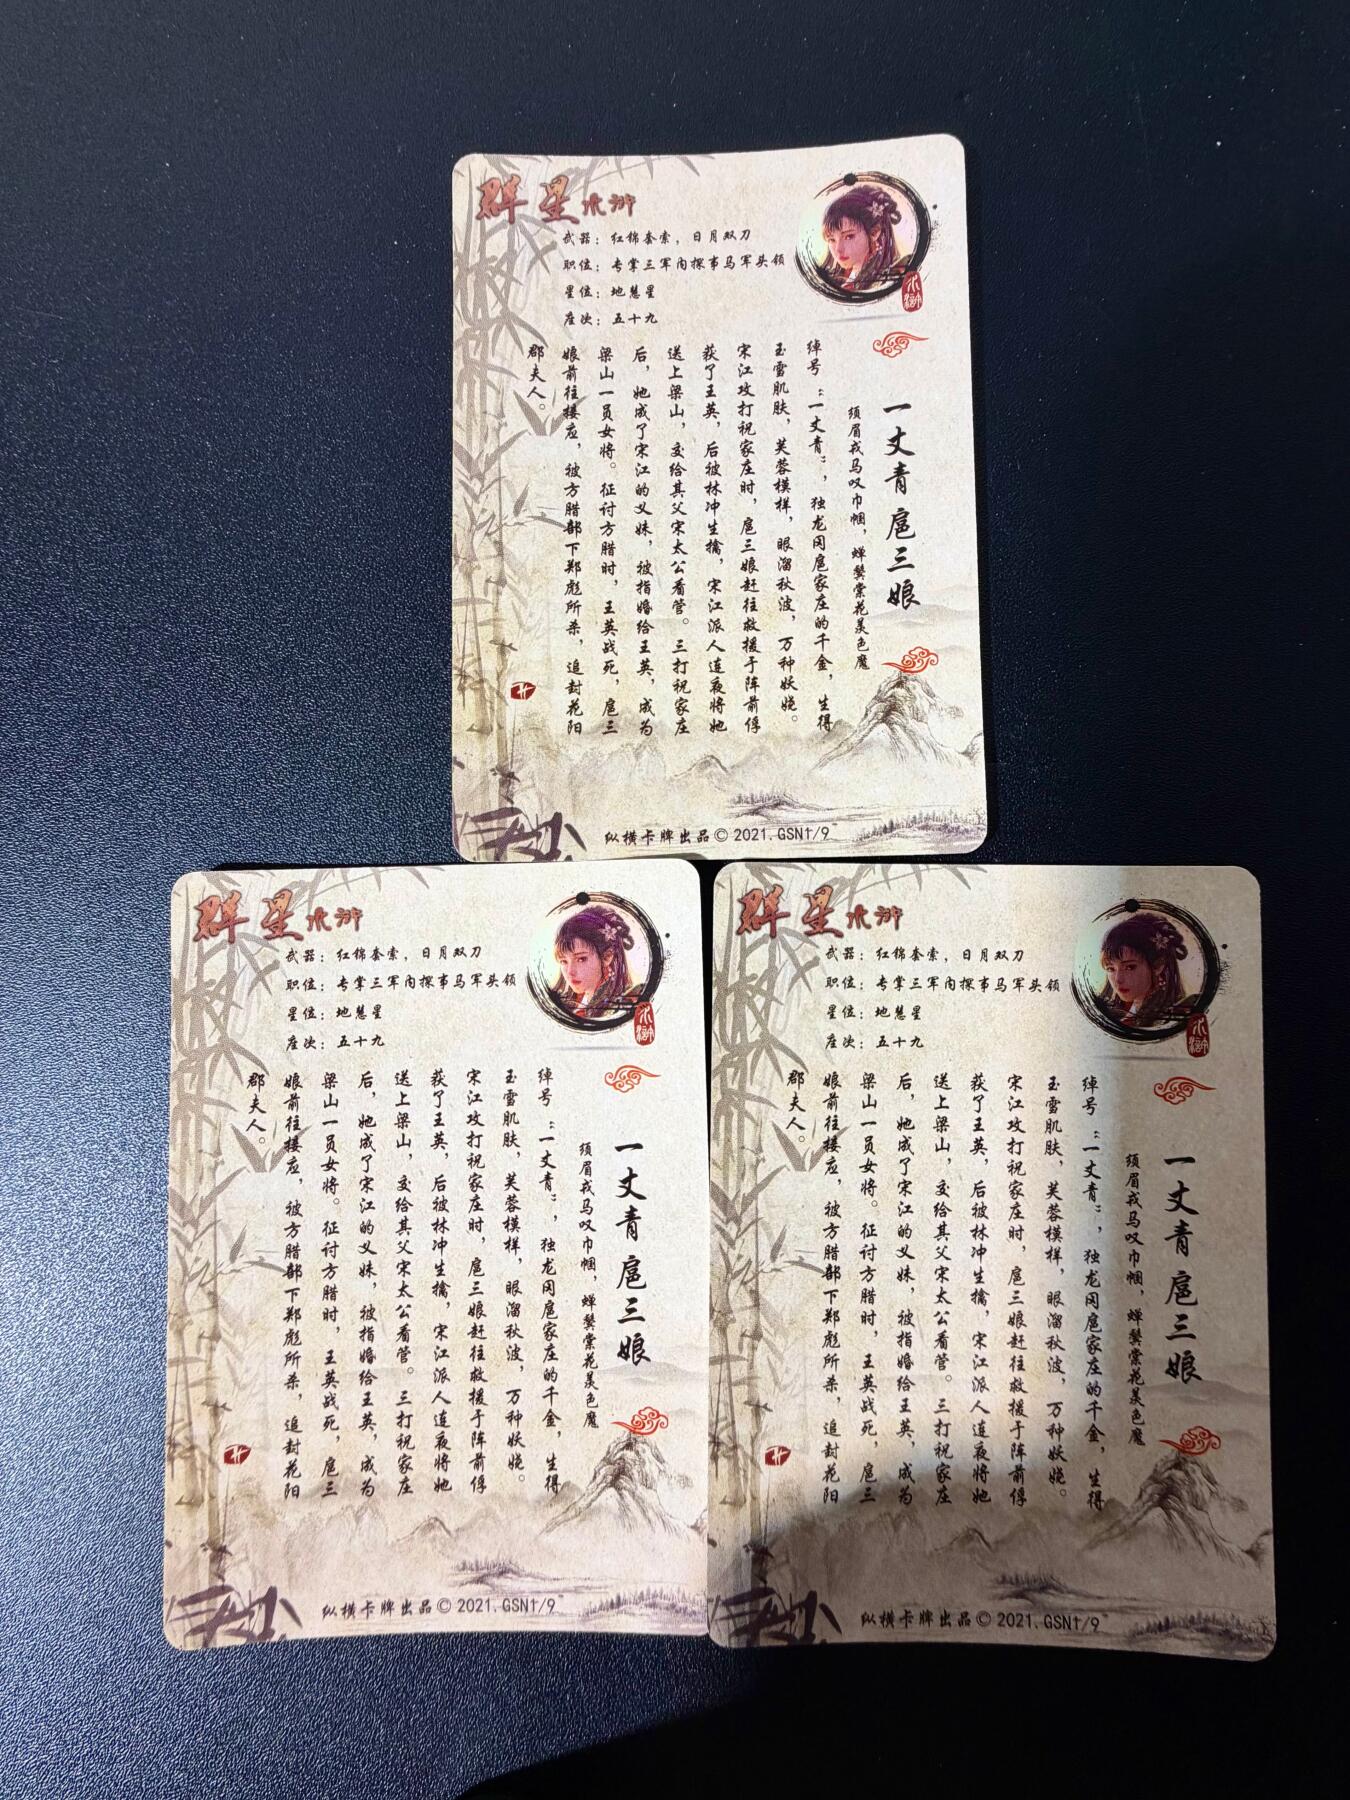 群星水浒
武器：红锦套索，日月双刀
职位：专掌三军内探事马军头领
星位：地慧星
座次：五十九
水浒
一丈青扈三娘
须眉戎马叹巾帼，蝉鬓棠花羡色魔
绰号“一丈青”，独龙冈扈家庄的千金，生得
玉雪肌肤，芙蓉模样，眼溜秋波，万种妖娆。
宋江攻打祝家庄时，扈三娘赶往救援于阵前俘
获了王英，后被林冲生擒，宋江派人连夜将她
送上梁山，交给其父宋太公看管。三打祝家庄
后，她成了宋江的义妹，被指婚给王英，成为
梁山一员女将。征讨方腊时，王英战死，扈三
娘前往接应，被方腊部下郑彪所杀，追封花阳
郡夫人。
纵横卡牌出品©2021.GSN1/9
群星水浒
武器：红锦套索，日月双刀
职位：专掌三军内探事马军头领
星位：地慧星
座次：五十九
水浒
一丈青扈三娘
须眉戎马叹巾帼，蝉鬓棠花羡色魔
绰号“一丈青”，独龙冈扈家庄的千金，生得
玉雪肌肤，芙蓉模样，眼溜秋波，万种妖娆。
宋江攻打祝家庄时，扈三娘赶往救援于阵前俘
获了王英，后被林冲生擒，宋江派人连夜将她
送上梁山，交给其父宋太公看管。三打祝家庄
后，她成了宋江的义妹，被指婚给王英，成为
梁山一员女将。征讨方腊时，王英战死，扈三
娘前往接应，被方腊部下郑彪所杀，追封花阳
郡夫人。
纵横卡牌出品©2021.GSN1/9
群星水浒
武器：红锦套索，日月双刀
职位：专掌三军内探事马军头领
星位：地慧星
座次：五十九
水浒
一丈青扈三娘
须眉戎马叹巾帼，蝉鬓棠花羡色魔
绰号“一丈青”，独龙冈扈家庄的千金，生得
玉雪肌肤，芙蓉模样，眼溜秋波，万种妖娆。
宋江攻打祝家庄时，扈三娘赶往救援于阵前俘
获了王英，后被林冲生擒，宋江派人连夜将她
送上梁山，交给其父宋太公看管。三打祝家庄
后，她成了宋江的义妹，被指婚给王英，成为
梁山一员女将。征讨方腊时，王英战死，扈三
娘前往接应，被方腊部下郑彪所杀，追封花阳
郡夫人。
纵横卡牌出品©2021.GSN1/9